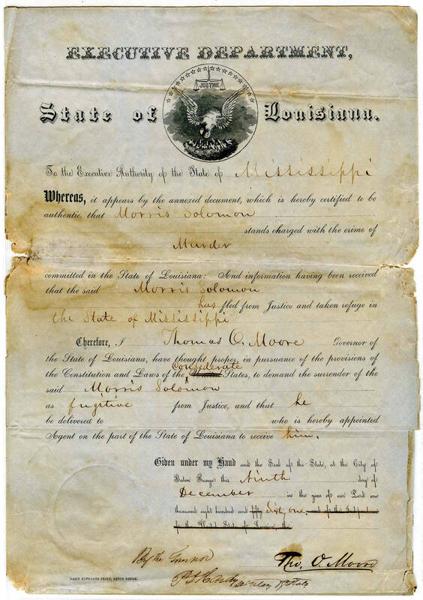 EXECUTIVE DEPARTMENT,
JUSTITIA
State of Louisiana.
To the Executive Authority of the State of Mississippi
Whereas, it appears by the annexed document, which is hereby certified to be
authentic that Morris Solomon
stands charged with the crime of
Murder
committed in the State of Louisiana: And information having been received
that the said Morris Solomon
has fled from Justice and taken refuge in
the State of Mississippi
Therefore, I Thomas O. Moore Governor of
the State of Louisiana, have thought proper, in pursuance of the provisions of
Confederate
the Constitution and Laws of the States, to demand the surrender of the
said Morris Solomon
as fugitive from Justice, and that he
be delivered to who is hereby appointed
Agent on the part of the State of Louisiana to receive him.
Given under my Hand and the Seal of the State, at the City of
Baton Rouge, this Ninth day of
December in the year of our Lord one
thousand eight hundred and fifty Sixty one, and of the
the
By the Governor
Tho. O. Moore